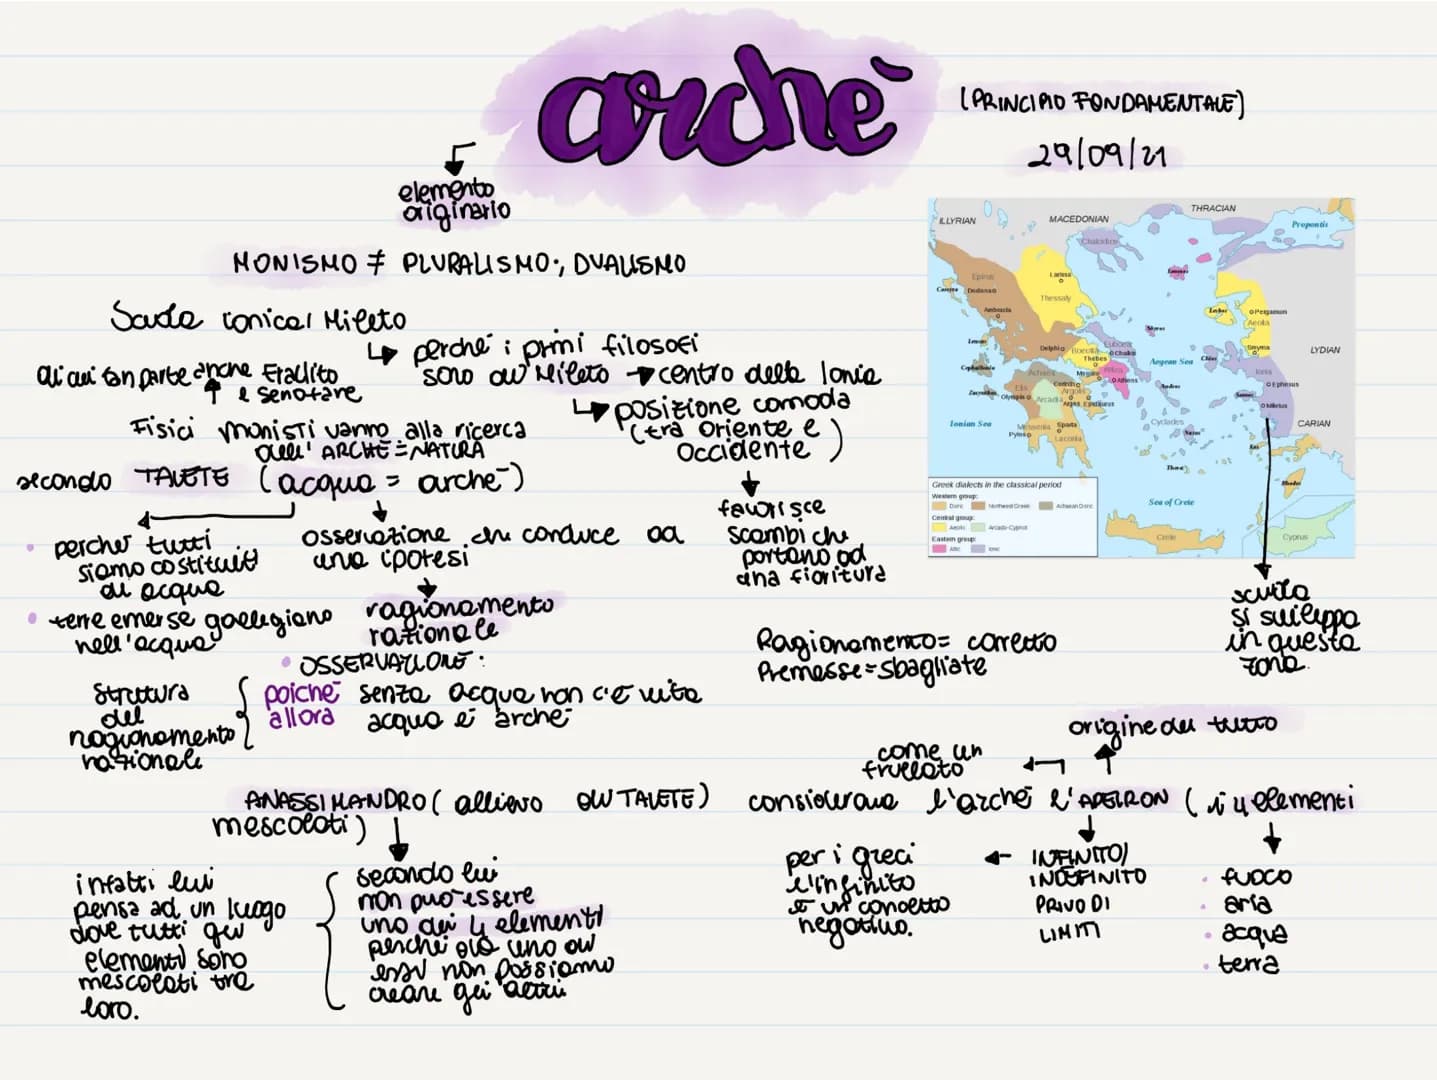 archè
(PRINCIPIO FONDAMENTALE)
29/09/21
elemento
originario
MONISMO ≠ PLURALISMO; DUALISMO
Scuola ionica/ Mileto
perché i primi filosofi
sono di Mileto → centro della Ionia
di cui fan parte anche Eraclito
e Senofane
posizione comoda
(tra oriente e
occidente)
Fisici monisti vanno alla ricerca
dell' ARCHÈ = NATURA
secondo TALETE (acqua = archè)
favorisce
scambi che
portano ad
una fioritura
• perché tutti
siamo costituiti
di acqua
• terre emerse galleggiano
nell'acqua
osservazione che conduce ad
una ipotesi
ragionamento
razionale
• OSSERVAZIONE:
struttura
del
ragionamento
razionale
poiché senza acqua non c'è vita
allora acqua è archè
Ragionamento= corretto
Premesse=sbagliate
ILLYRIAN
MACEDONIAN
THRACIAN
Propontis
Chalcidice
Epirus
Larissa
Lemnos
Corcyra
Dodona
Thessaly
Ambracia
Lesbos
Pergamum
Aeolis
Skyros
Leucas
Delphi
Euboea
Smyrna
LYDIAN
Boeotia
Chalkis
Thebes
Aegean Sea
Chios
Cephallonia
Achaea
Megara
Attica
Ionia
Elis
Corinth
Athens
Andros
Ephesus
Zacynthus
Olympia
Argolis
Samos
Arcadia
Argos
Epidaurus
Miletus
Ionian Sea
Messenia
Sparta
Cyclades
CARIAN
Pylos
Laconia
Naxos
Kos
Thera
Rhodes
Sea of Crete
Crete
Cyprus
Greek dialects in the classical period
Western group:
Doric
Northwest Greek
Achaean Doric
Central group:
Aeolic
Arcado-Cypriot
Eastern group:
Attic
Ionic
scuola
si sviluppa
in questa
zona.
origine del tutto
come un
frullato
ANASSIMANDRO ( allievo di TALETE) considerava l'archè l'APEIRON (i 4 elementi
mescolati)
infatti lui
pensa ad un luogo
dove tutti gli
elementi sono
mescolati tra
loro.
secondo lui
non può essere
uno dei 4 elementi
perché da uno di
essi non possiamo
creare gli altri
per i greci
l'infinito
è un concetto
negativo.
INFINITO/
INDEFINITO
PRIVO DI
LIMITI
• fuoco
• aria
• acqua
• terra